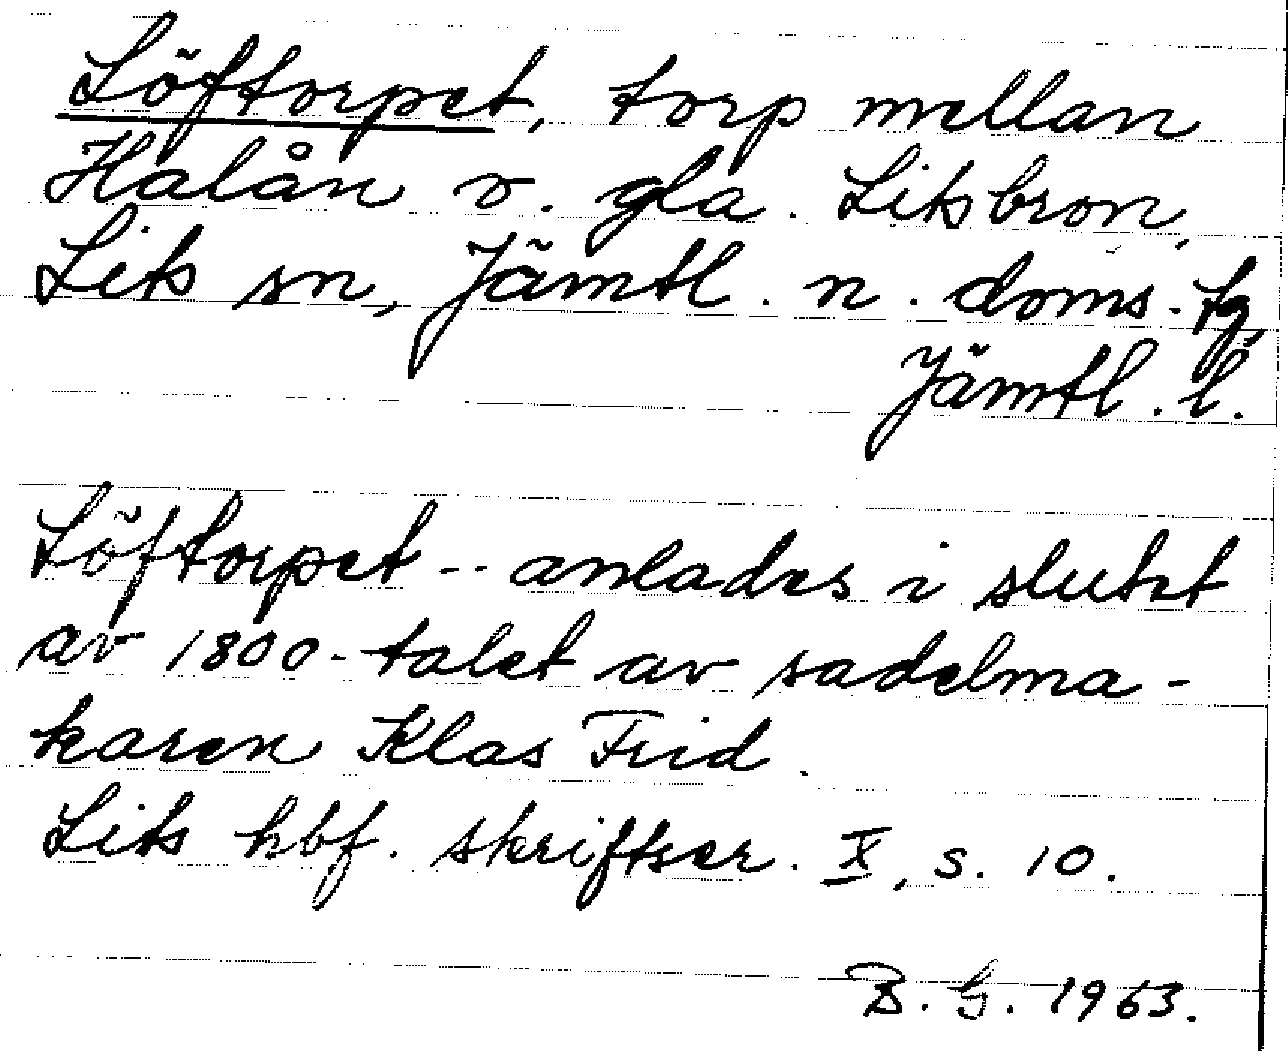 Löftorpet, torp mellan
Halån o. gla. Litsbron,
Lits sn, Jämtl. n. doms. tg,
Jämtl. l.
Löftorpet -- anlades i slutet
av 1800-talet av sadelma-
karen Klas Frid.
Lits hbf. skriftser. X, s. 10.
B. G. 1963.